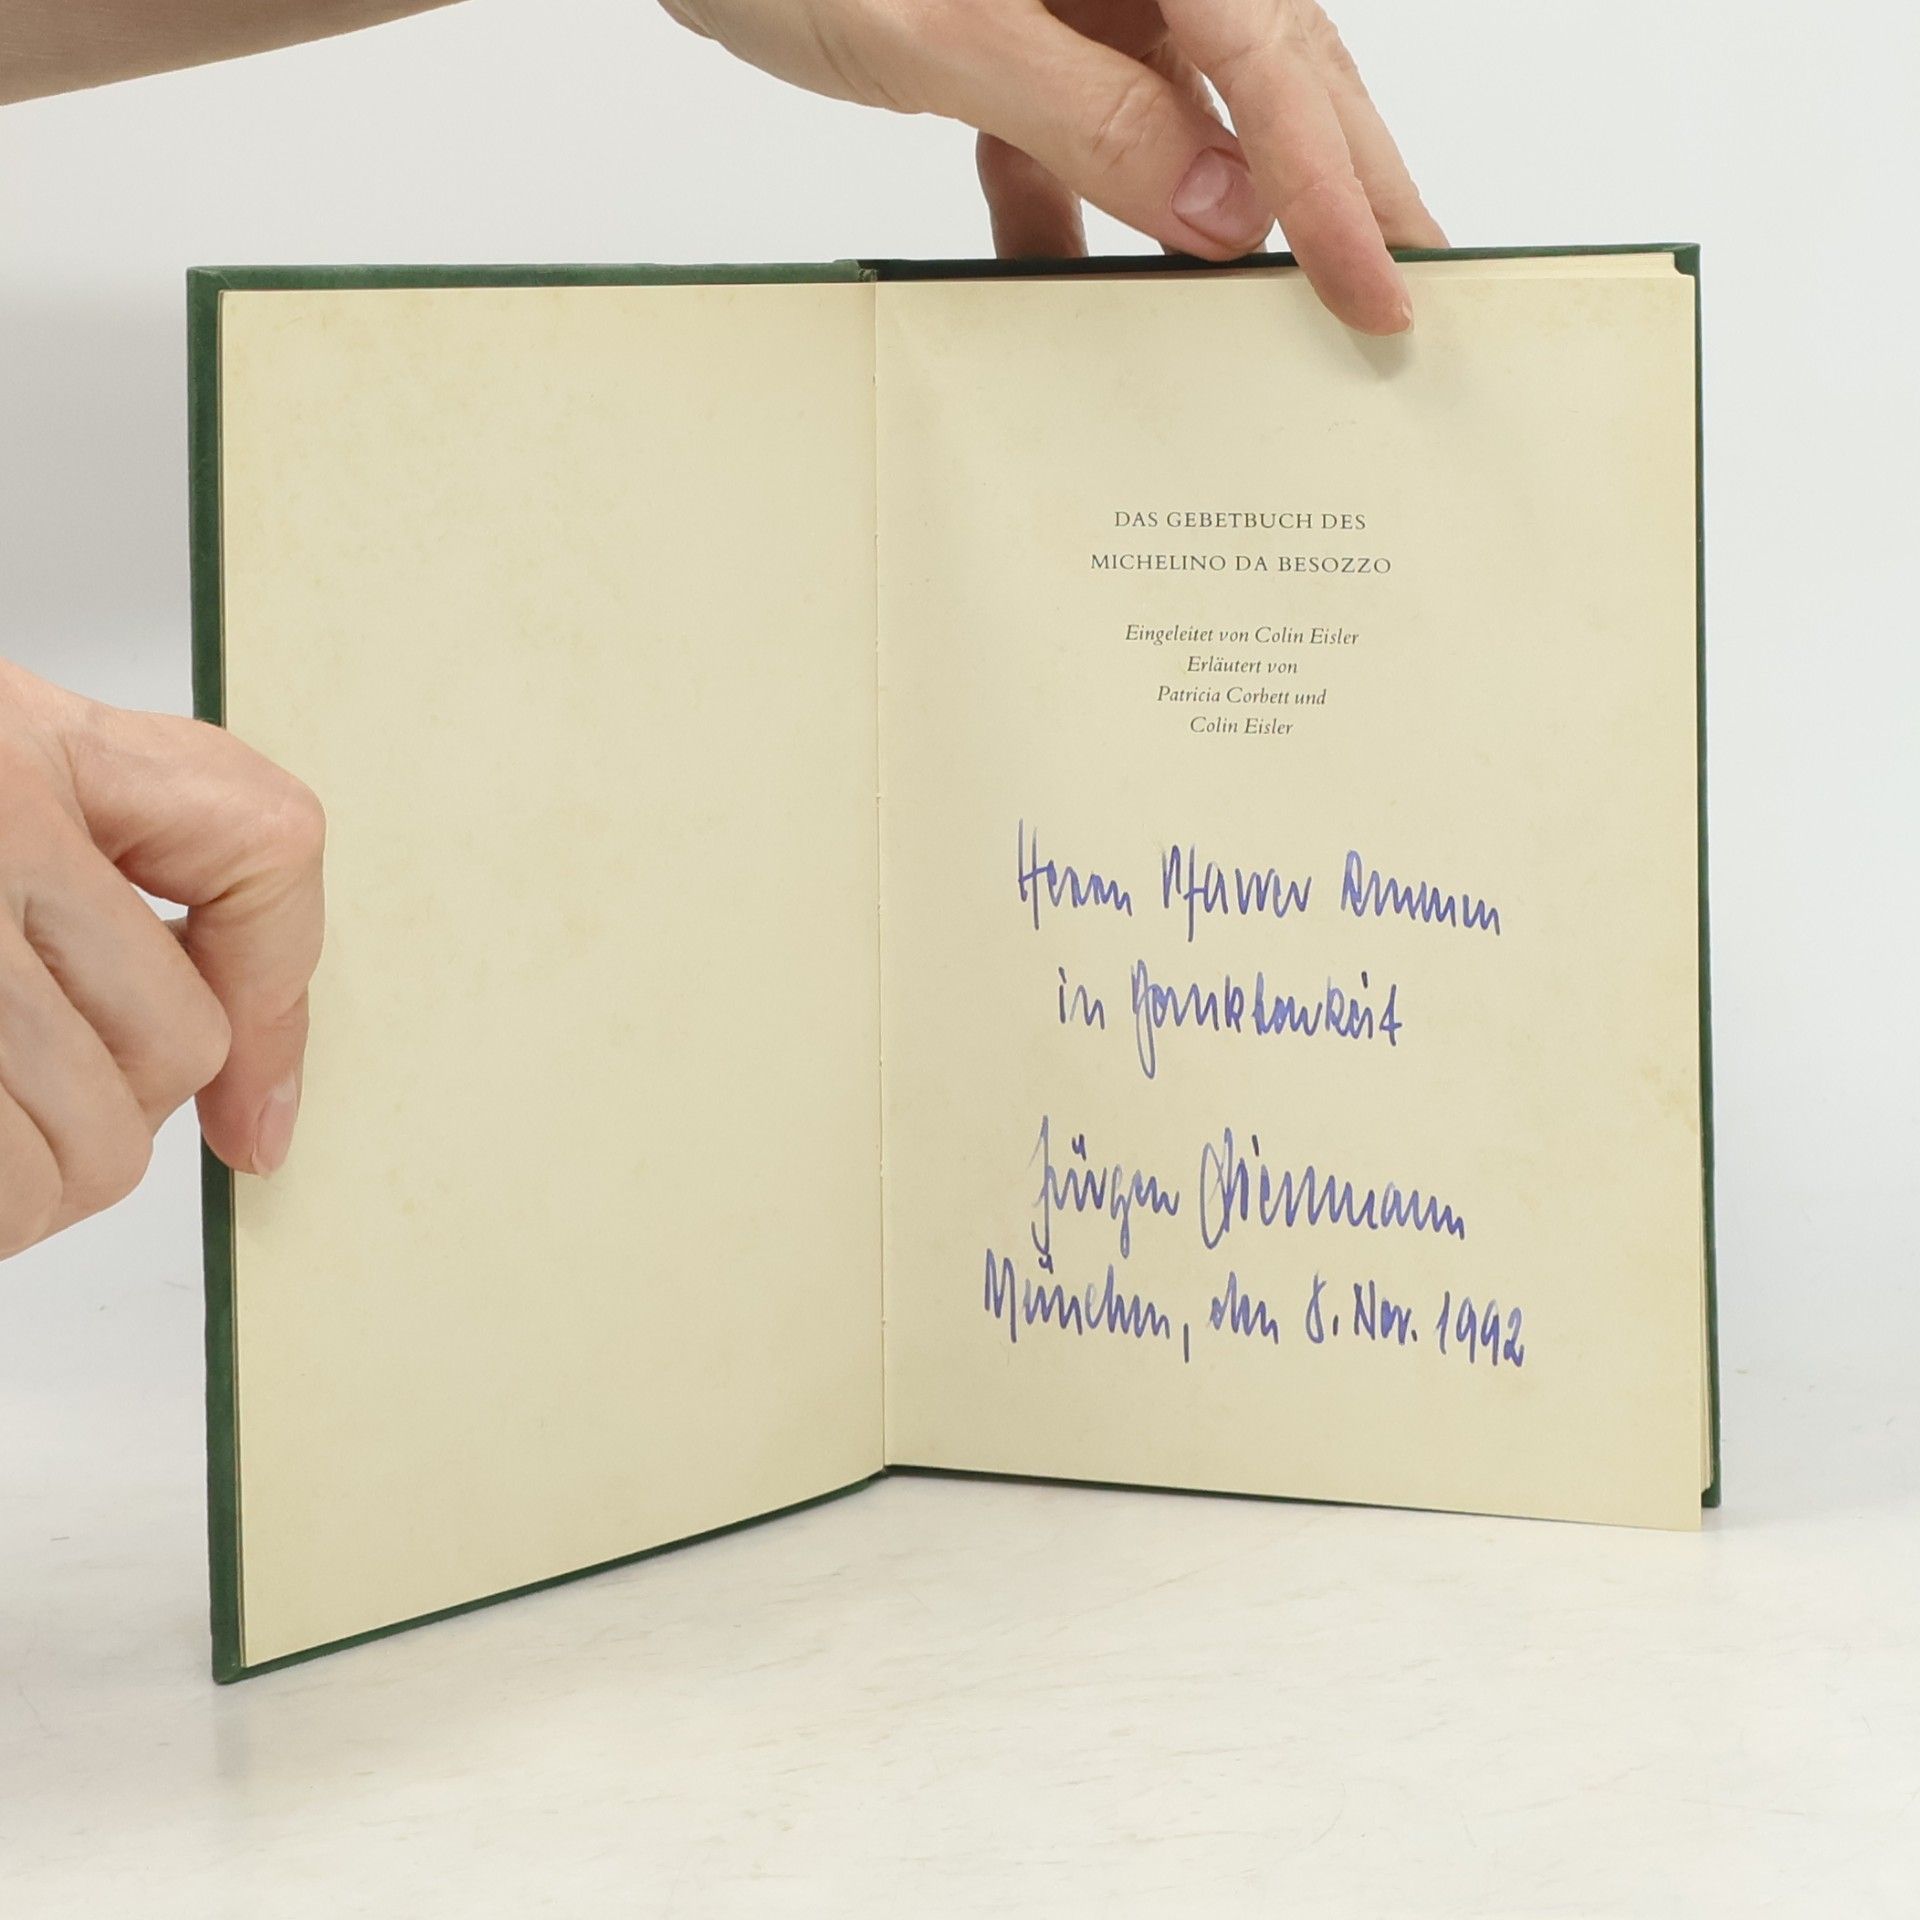 DAS GEBETBUCH DES
MICHELINO DA BESOZZO
Eingeleitet von Colin Eisler
Erläutert von
Patricia Corbett und
Colin Eisler
Herrn Pfarrer
in Dankbarkeit
Jürgen
München, den 8. Nov. 1992